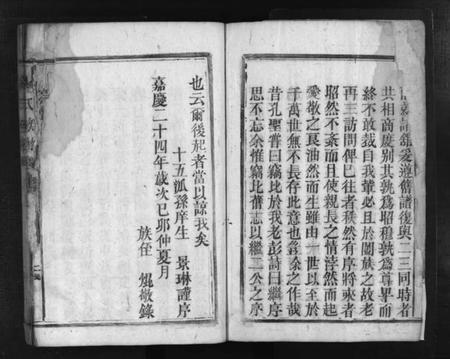 嘉謀爰遵舊譜復與二三同時者
共相商慶別其孰為昭穆孰為尊畀而
終不敢裁自我輩必且於闔族之故老
再三訪問俾已往者秩然有序將來者
昭然不紊而且使親長之情浡然而起
愛敬之良油然而生雖由一世以至於
千萬世無不長存此意也茲徐之作哉
昔孔聖嘗曰竊比於我老彭詩曰繼序
思不忘余惟竊比舊志以繼二公之序
也云爾後起者當以諒我矣
十五派孫庠生 景琳謹序
嘉慶二十四年歲次己卯仲夏月
族侄 焜敬錄